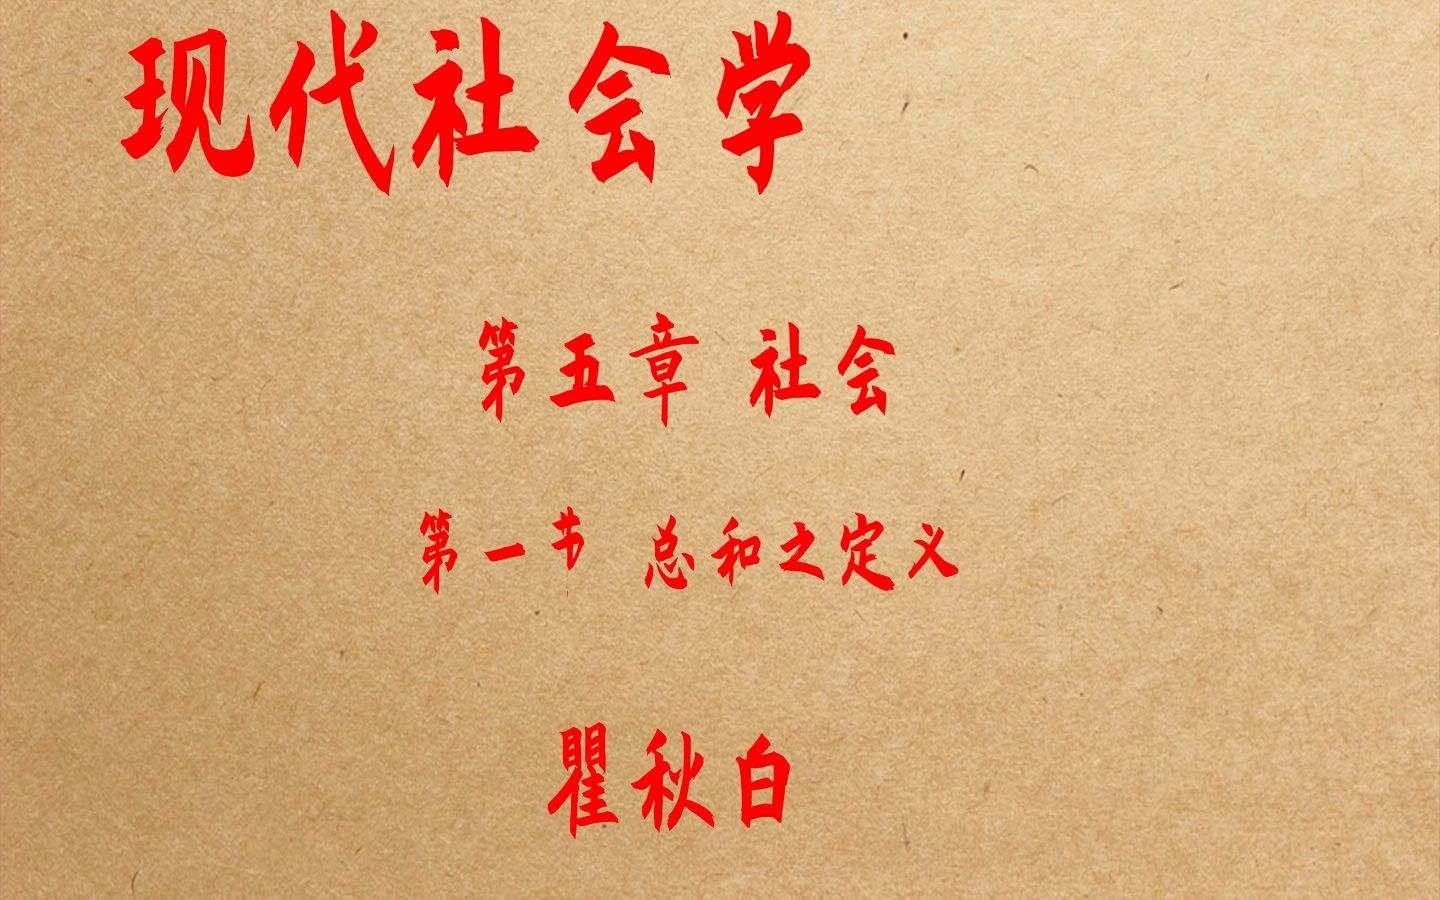 现代社会学
第五章 社会
第一节 总和之定义
瞿秋白